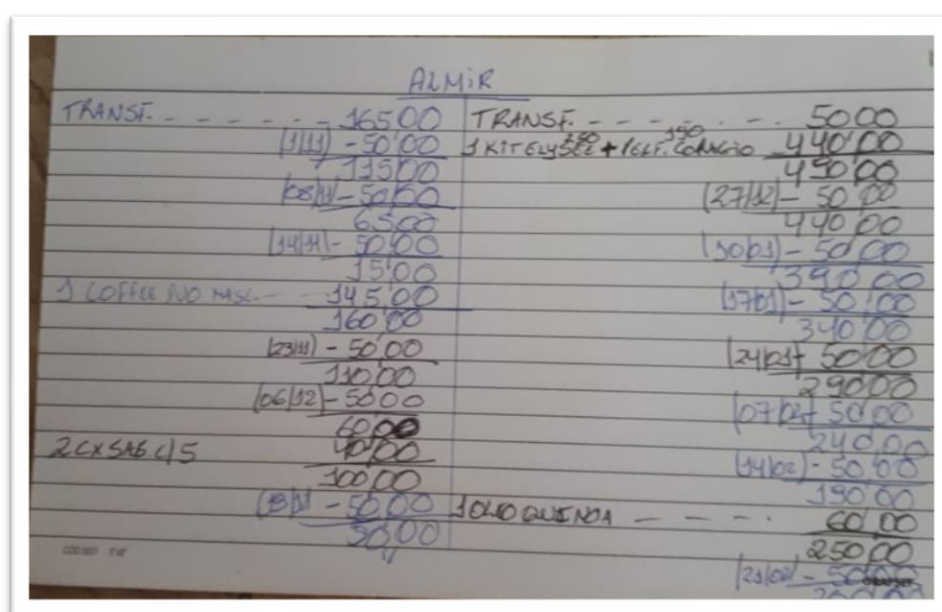 ALMIR
TRANSF. - - - - - - 165,00
(1/11) - 50,00
115,00
(08/11) - 50,00
65,00
(14/11) - 50,00
15,00
1 COFFEE DUO MASC. - - 145,00
160,00
(23/11) - 50,00
110,00
(06/12) - 50,00
60,00
2 CX SAB C/5 40,00
100,00
- 50,00
50,00
TRANSF. - - - - - - 50,00
250 190
1 KIT ELYSÉE + PERF. CORAÇÃO 440,00
490,00
(27/12) - 50,00
440,00
(10/01) - 50,00
390,00
(17/01) - 50,00
340,00
(24/01) - 50,00
290,00
(07/02) - 50,00
240,00
(14/02) - 50,00
190,00
1 OLEO QUINOA - - - - 60,00
250,00
(21/02) - 50,00
200,00